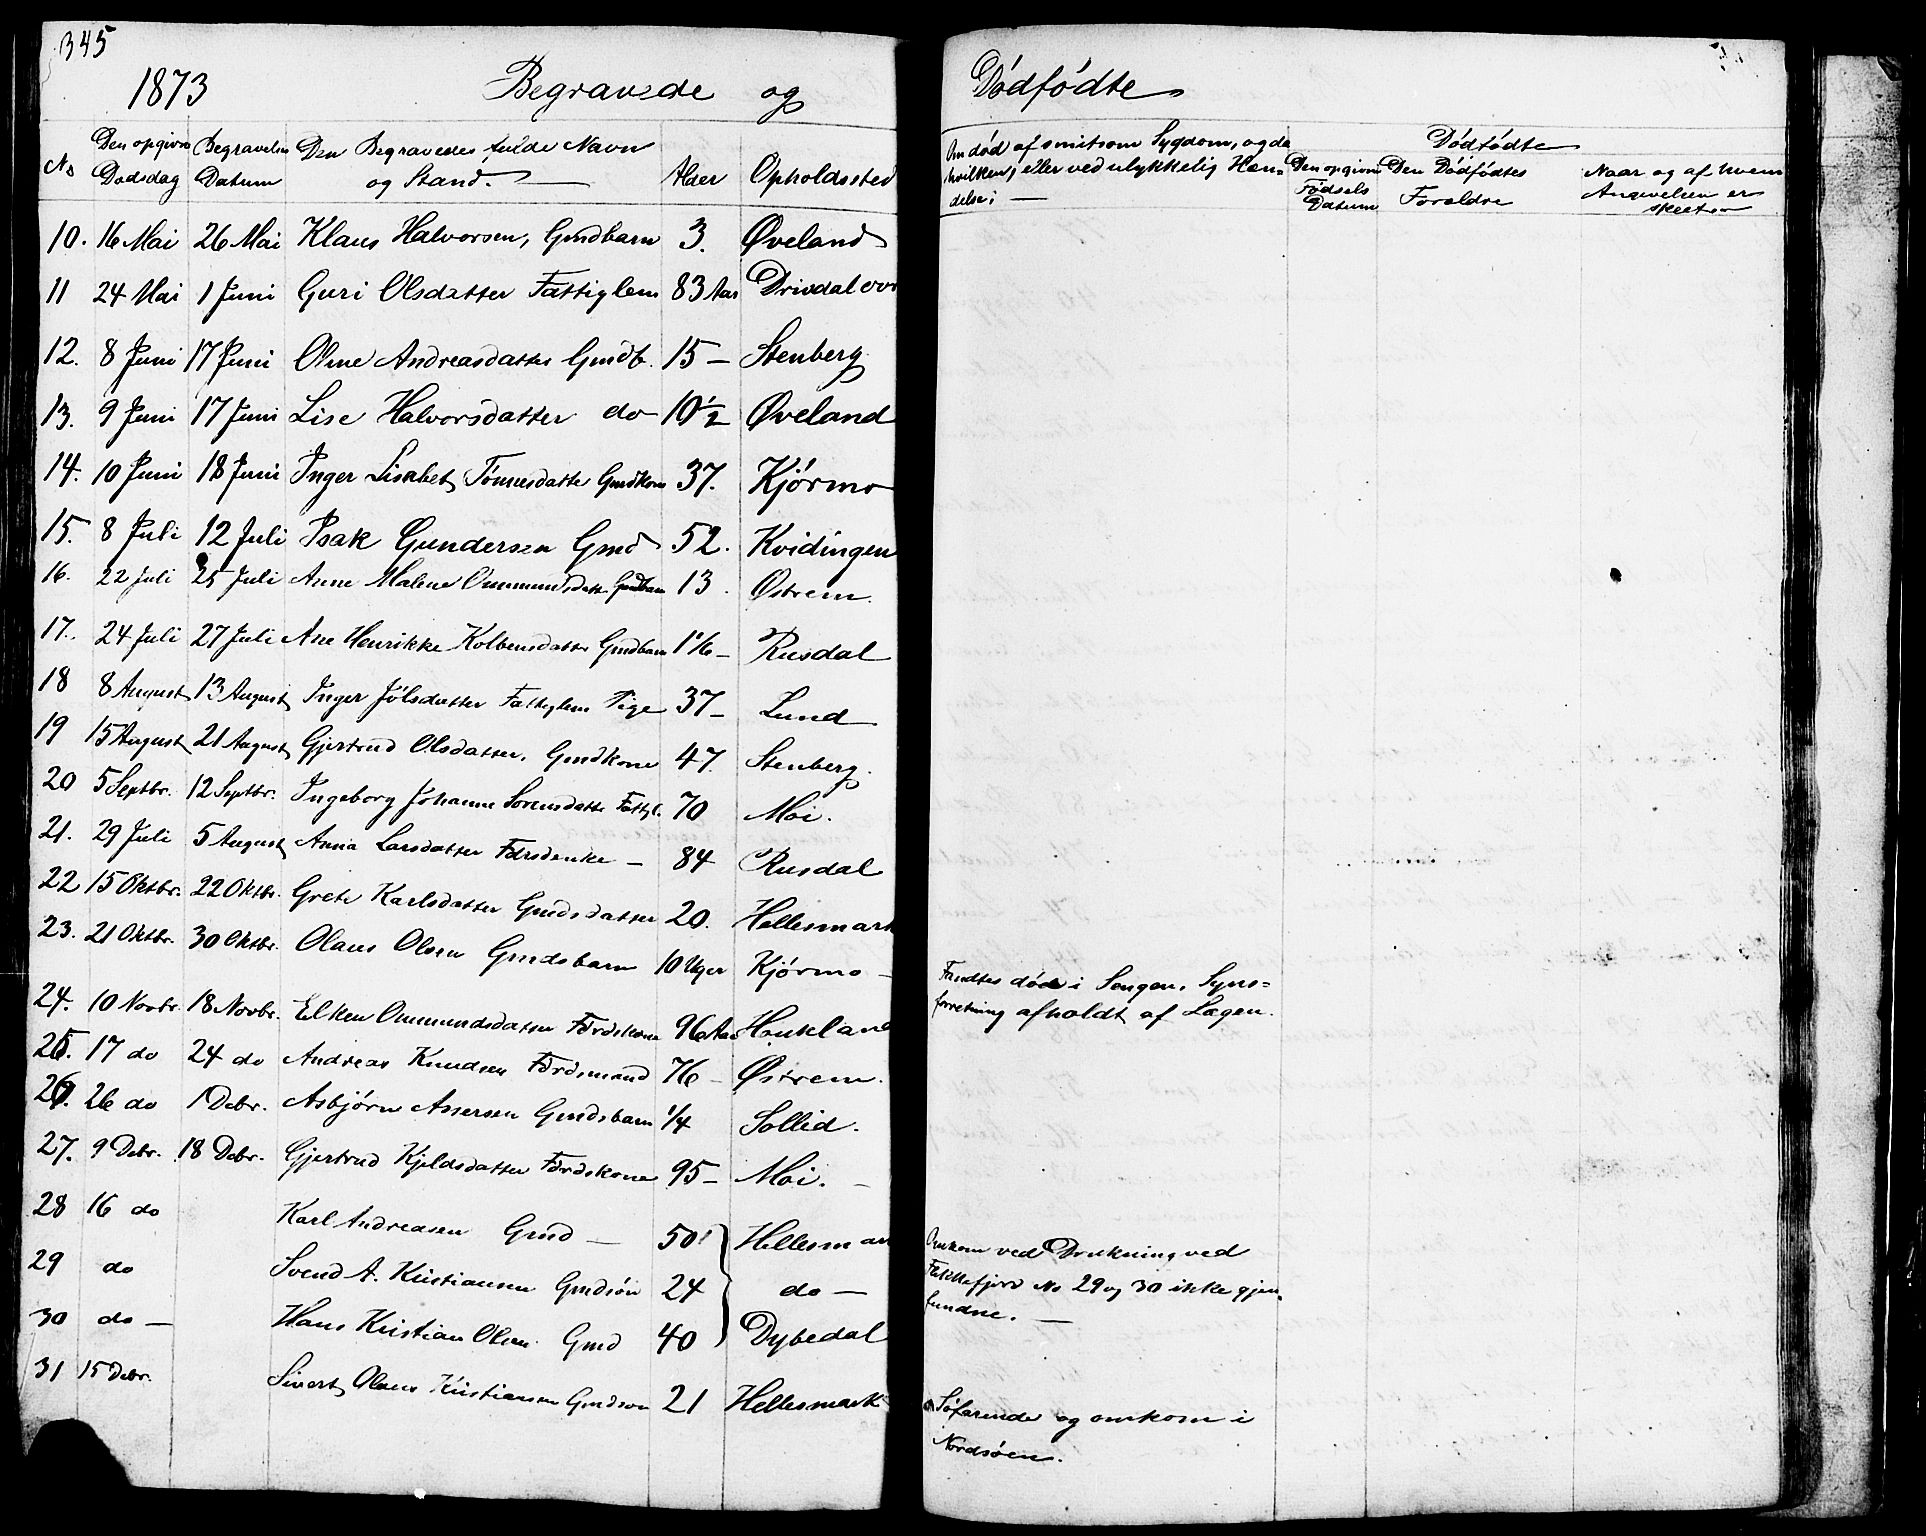 345
1873 Begravede og Dødfødte
No Den opgivne Dødsdag Begravelses Datum Den Begravedes fulde Navn og Stand. Alder Opholdssted
Om død af smitsom Sygdom, og da hvilken; eller ved ulykkelig Hændelse;
Dødfødte
Den opgivne Fødsels Datum Den Dødfødtes Forældre Naar og af hvem Angivelsen er skeet
10. 16 Mai 26 Mai Klaus Halvorsen, Gmdbarn 3. Øveland
11 24 Mai 1 Juni Guri Olsdatter Fattiglem 83 Aar Drivdal
12. 8 Juni 17 Juni Oline Andreasdatter Gmdb. 15 – Stenberg
13. 9 Juni 17 Juni Lise Halvorsdatter do 10 1/2 Øveland
14. 10 Juni 18 Juni Inger Lisabet Tønnesdatter Gmdkone 37. Kjørmo
15. 8 Juli 12 Juli Isak Gundersen Gmd 52. Kvidingen
16. 22 Juli 25 Juli Anne Malene Ommundsdatt Gmdbarn 13. Østrem.
17. 24 Juli 27 Juli Ane Henrikke Kolbensdatter Gmdbarn Rusdal
18 8 August 13 August Inger Jølsdatter Fattiglem Pige 37 – Lund
19 15 August 21 August Gjertrud Olsdatter, Gmdkone 47. Stenberg.
20 5 Septbr. 12 Septbr. Ingeborg Johanne Sørensdatte Fattigl. 70 Moi.
21. 29 Juli 5 August Anna Larsdatter Fdrdsenke – 84 Rusdal
22 15 Oktbr. 22 Oktbr. Grete Karlsdatter Gmdsdatter 20. Hellesmark
23. 21 Oktbr. 30 Oktbr. Olaus Olsen Gmdsbarn 10 Uger Kjørmo –
Fandtes død i Sengen. Syns=
forretning afholdt af Lægen.
24. 10 Novbr. 18 Novbr. Elken Ommundsdatter Fdrdskone 96 Aar Haukland
25. 17 do 24 do Andreas Knudsen Fdrdsmand 76 – Østrem.
26. 26 do 1 Debr. Asbjørn Assersen Gmdsbarn 1/4 Sollid.
27. 9 Debr. 18 Debr. Gjertrud Kjeldsdatter Fdrdskone 95 – Moi. –
28 16 do Karl Andreasen Gmd – 50 Hellesmark
29 do Svend A. Kristiansen Gmdsøn 24 do –
30 do – Hans Kristian Olsen. Gmd 40 Dybedal
Omkom ved Drukning ved
No 29 og 30 ikke gjen-
fundne. –
31 15 Debr. Sivert Olaus Kristiansen Gmdsøn 21 Hellesmark
Søfarende og omkom i
Nordsøen.